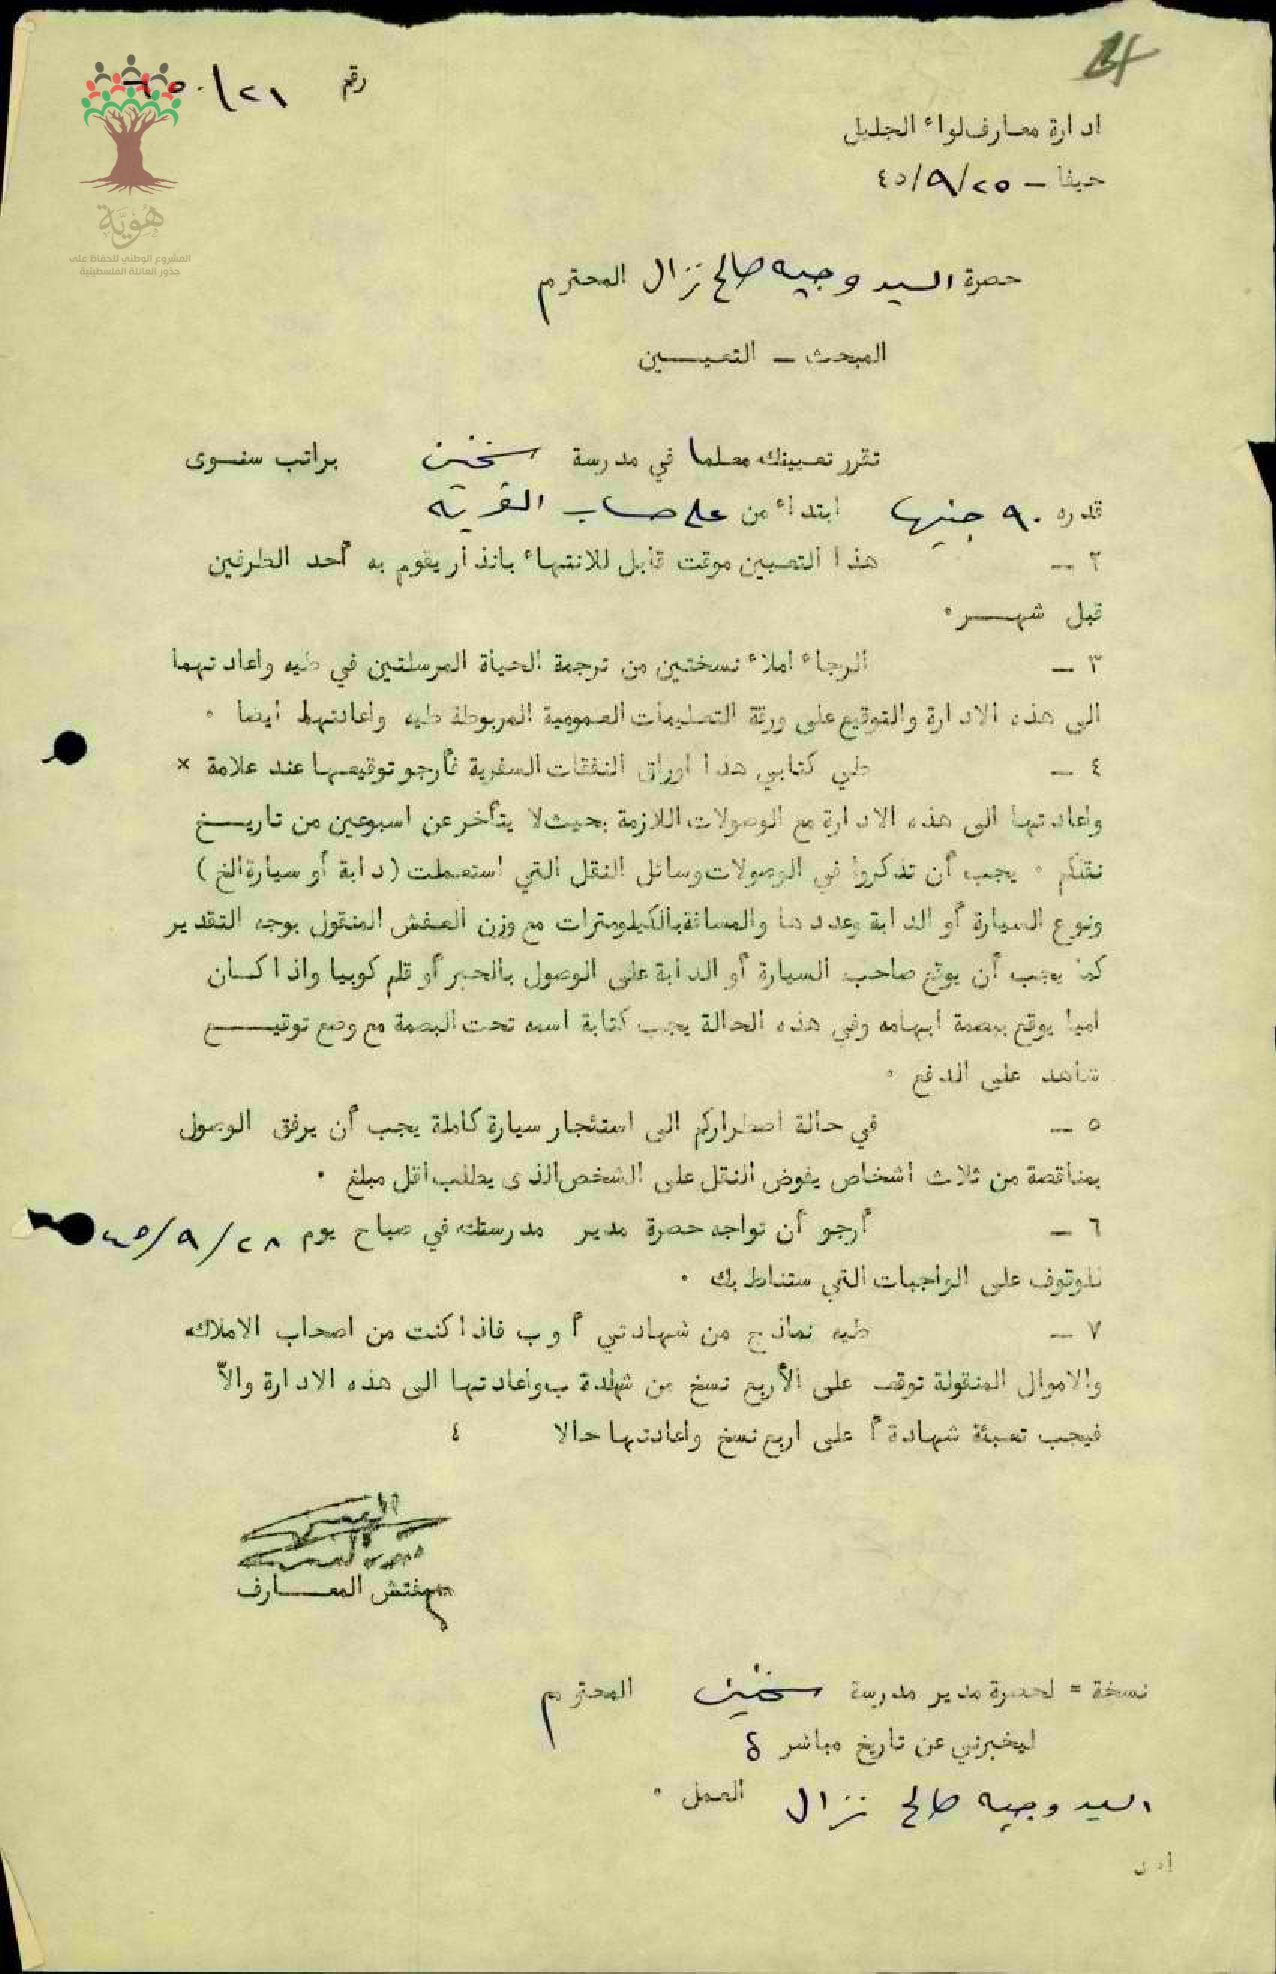 رقم ٢١/
ادارة معارف لواء الجليل
حيفا ــ ٤٥/٩/٢٥
هُوِيَّة
المشروع الوطني للحفاظ على
جذور العائلة الفلسطينية
حضرة السيد وجيه صالح نزال المحترم
المبحث ــ التعيـــين
تقرر تعيينك معلما في مدرسة سخنين براتب سنوى
قدره ٩٠ جنيها ابتداء من على حساب القرية
٢ ــ هذا التعيين موقت قابل للانتهاء بانذار يقوم به أحد الطرفين
قبل شهــر٠
٣ ــ الرجاء املاء نسختين من ترجمة الحياة المرسلتين في طيه واعادتهما
الى هذه الادارة والتوقيع على ورقة التعليمات العمومية المربوطة طيه واعادتها ايضا ٠
٤ ــ طي كتابي هذا اوراق النفقات السفرية فأرجو توقيعها عند علامة ×
واعادتها الى هذه الادارة مع الوصولات اللازمة بحيث لا يتأخر عن اسبوعين من تاريــخ
نقلكم ٠ يجب أن تذكروا في الوصولات وسائل النقل التي استعملت (دابة أو سيارة الخ)
ونوع السيارة أو الدابة وعددها والمسافة بالكيلومترات مع وزن العفش المنقول بوجه التقدير
كما يجب أن يوقع صاحب السيارة أو الدابة على الوصول بالحبر أو قلم كوبيا واذا كــان
اميا يوقع ببصمة ابهامه وفي هذه الحالة يجب كتابة اسمه تحت البصمة مع وضع توقيـــع
شاهد على الدفع ٠
٥ ــ في حالة اضطراركم الى استئجار سيارة كاملة يجب أن يرفق الوصول
بمناقصة من ثلاث اشخاص يفوض النقل على الشخص الذى يطلب اقل مبلغ ٠
٦ ــ أرجو أن تواجه حضرة مدير مدرستك في صباح يوم ٤٥/٩/٢٨
للوقوف على الواجبات التي ستناط بك ٠
٧ ــ طيه نماذج من شهادتي أ و ب فاذا كنت من اصحاب الاملاك
والاموال المنقولة توقع على الأربع نسخ من شهادة ب واعادتها الى هذه الادارة والاّ
فيجب تعبئة شهادة أ على اربع نسخ واعادتها حالا ٤
مفتش المعـــارف
نسخة = لحضرة مدير مدرسة سخنين المحترم
ليخبرني عن تاريخ مباشرة
السيد وجيه صالح نزال العمل ٠